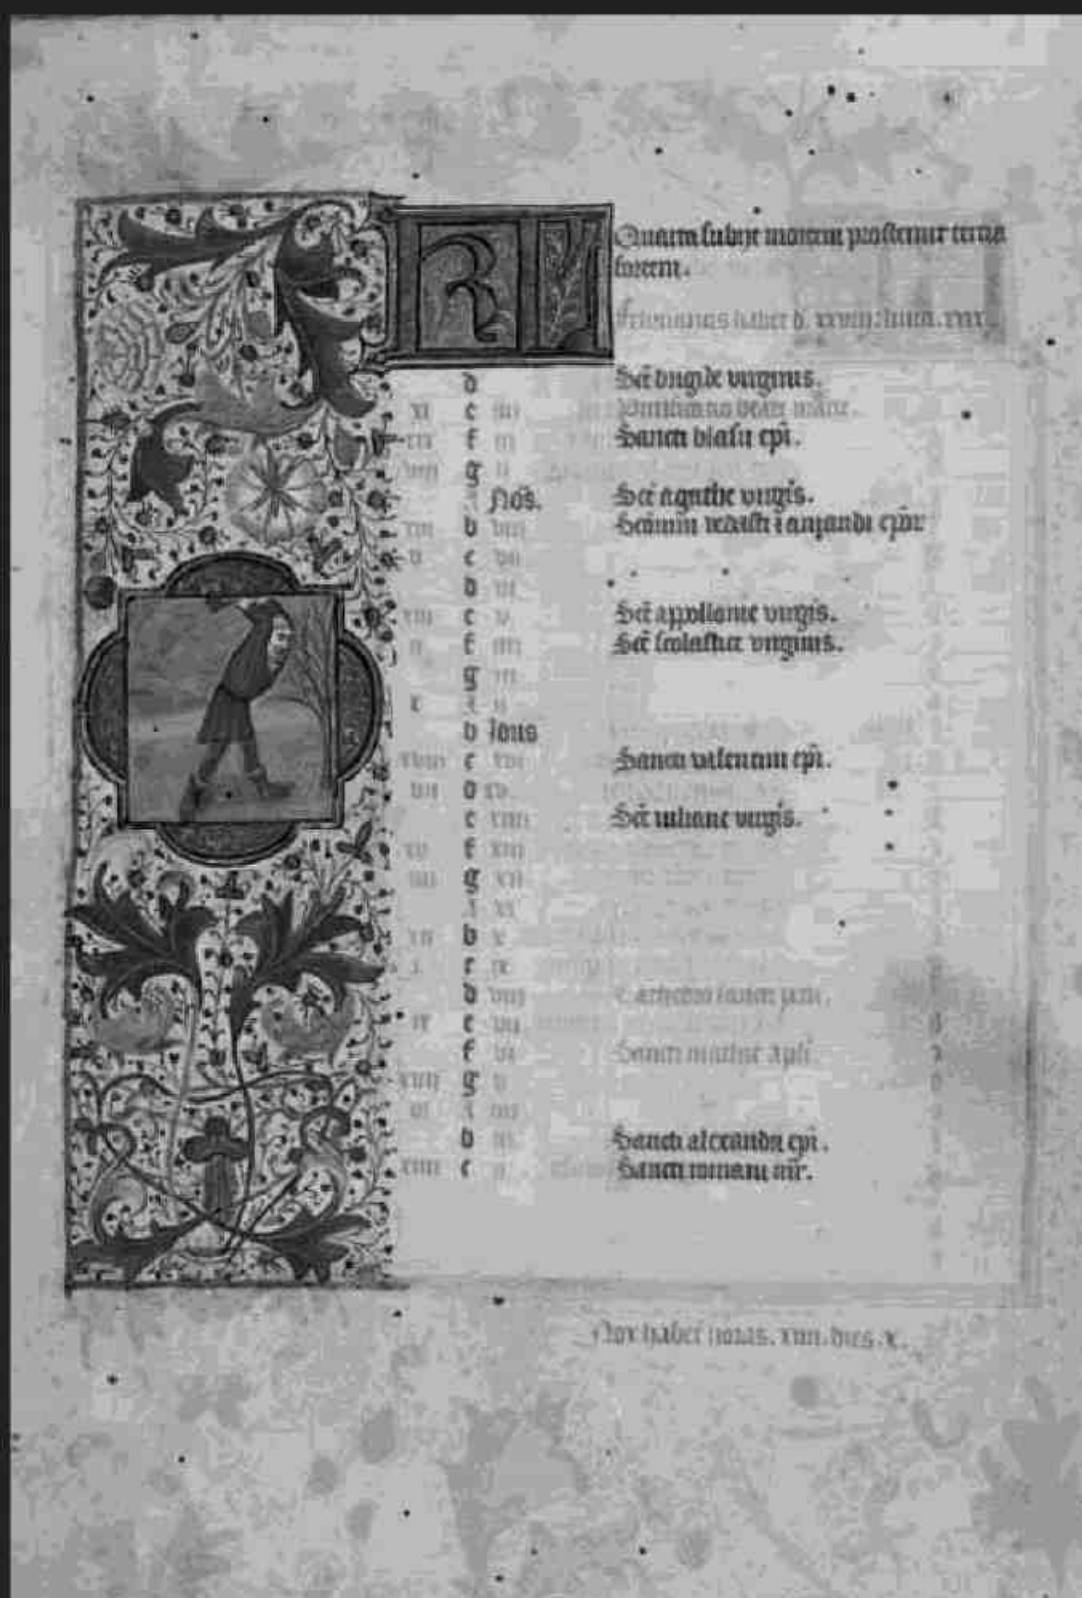 KL Quarta subijt mortem prosternit tercia
fortem.
Februarius habet d. xxviij. luna. xxix.
d Scē brigide virginis.
xi e iiii Purificatio beate marie.
xix f iii Sancti blasij epī.
viii g ii
A Noṡ. Scē agathe virgīs.
xvi b viii Scōrum vedasti ⁊ amandi epōr
v c vii
d vi
xiii e v Scē appollonie virgīs.
ii f iiii Scē scolastice virginis.
g iii
x A ii
b Idus
xviii c xvi Sancti valentini epī.
vii d xv
e xiiii Scē iuliane virgīs.
xv f xiii
iiii g xii
A xi
xii b x
i c ix
d viii Cathedra sancti petri.
ix e vii
f vi Sancti mathie apli
xvii g v
vi A iiii
b iii Sancti alexandri epī.
xiiii c ii Sancti romani mr̄.
Nox habet horas. xiiii. dies. x.